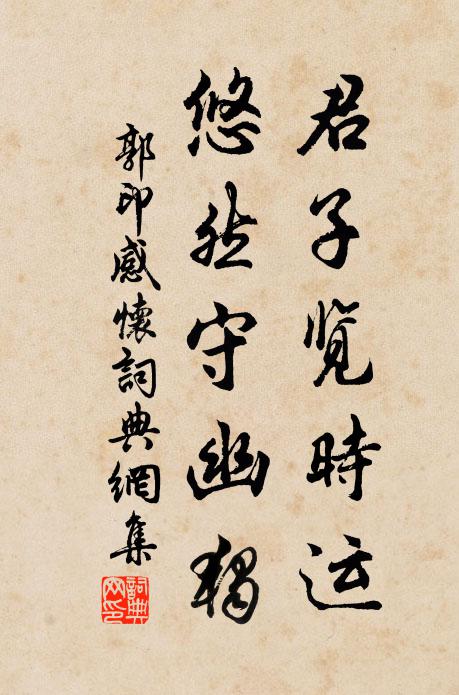 君子览時运
悠然守幽獨
郭印感懷詞典網集
詞典
网印